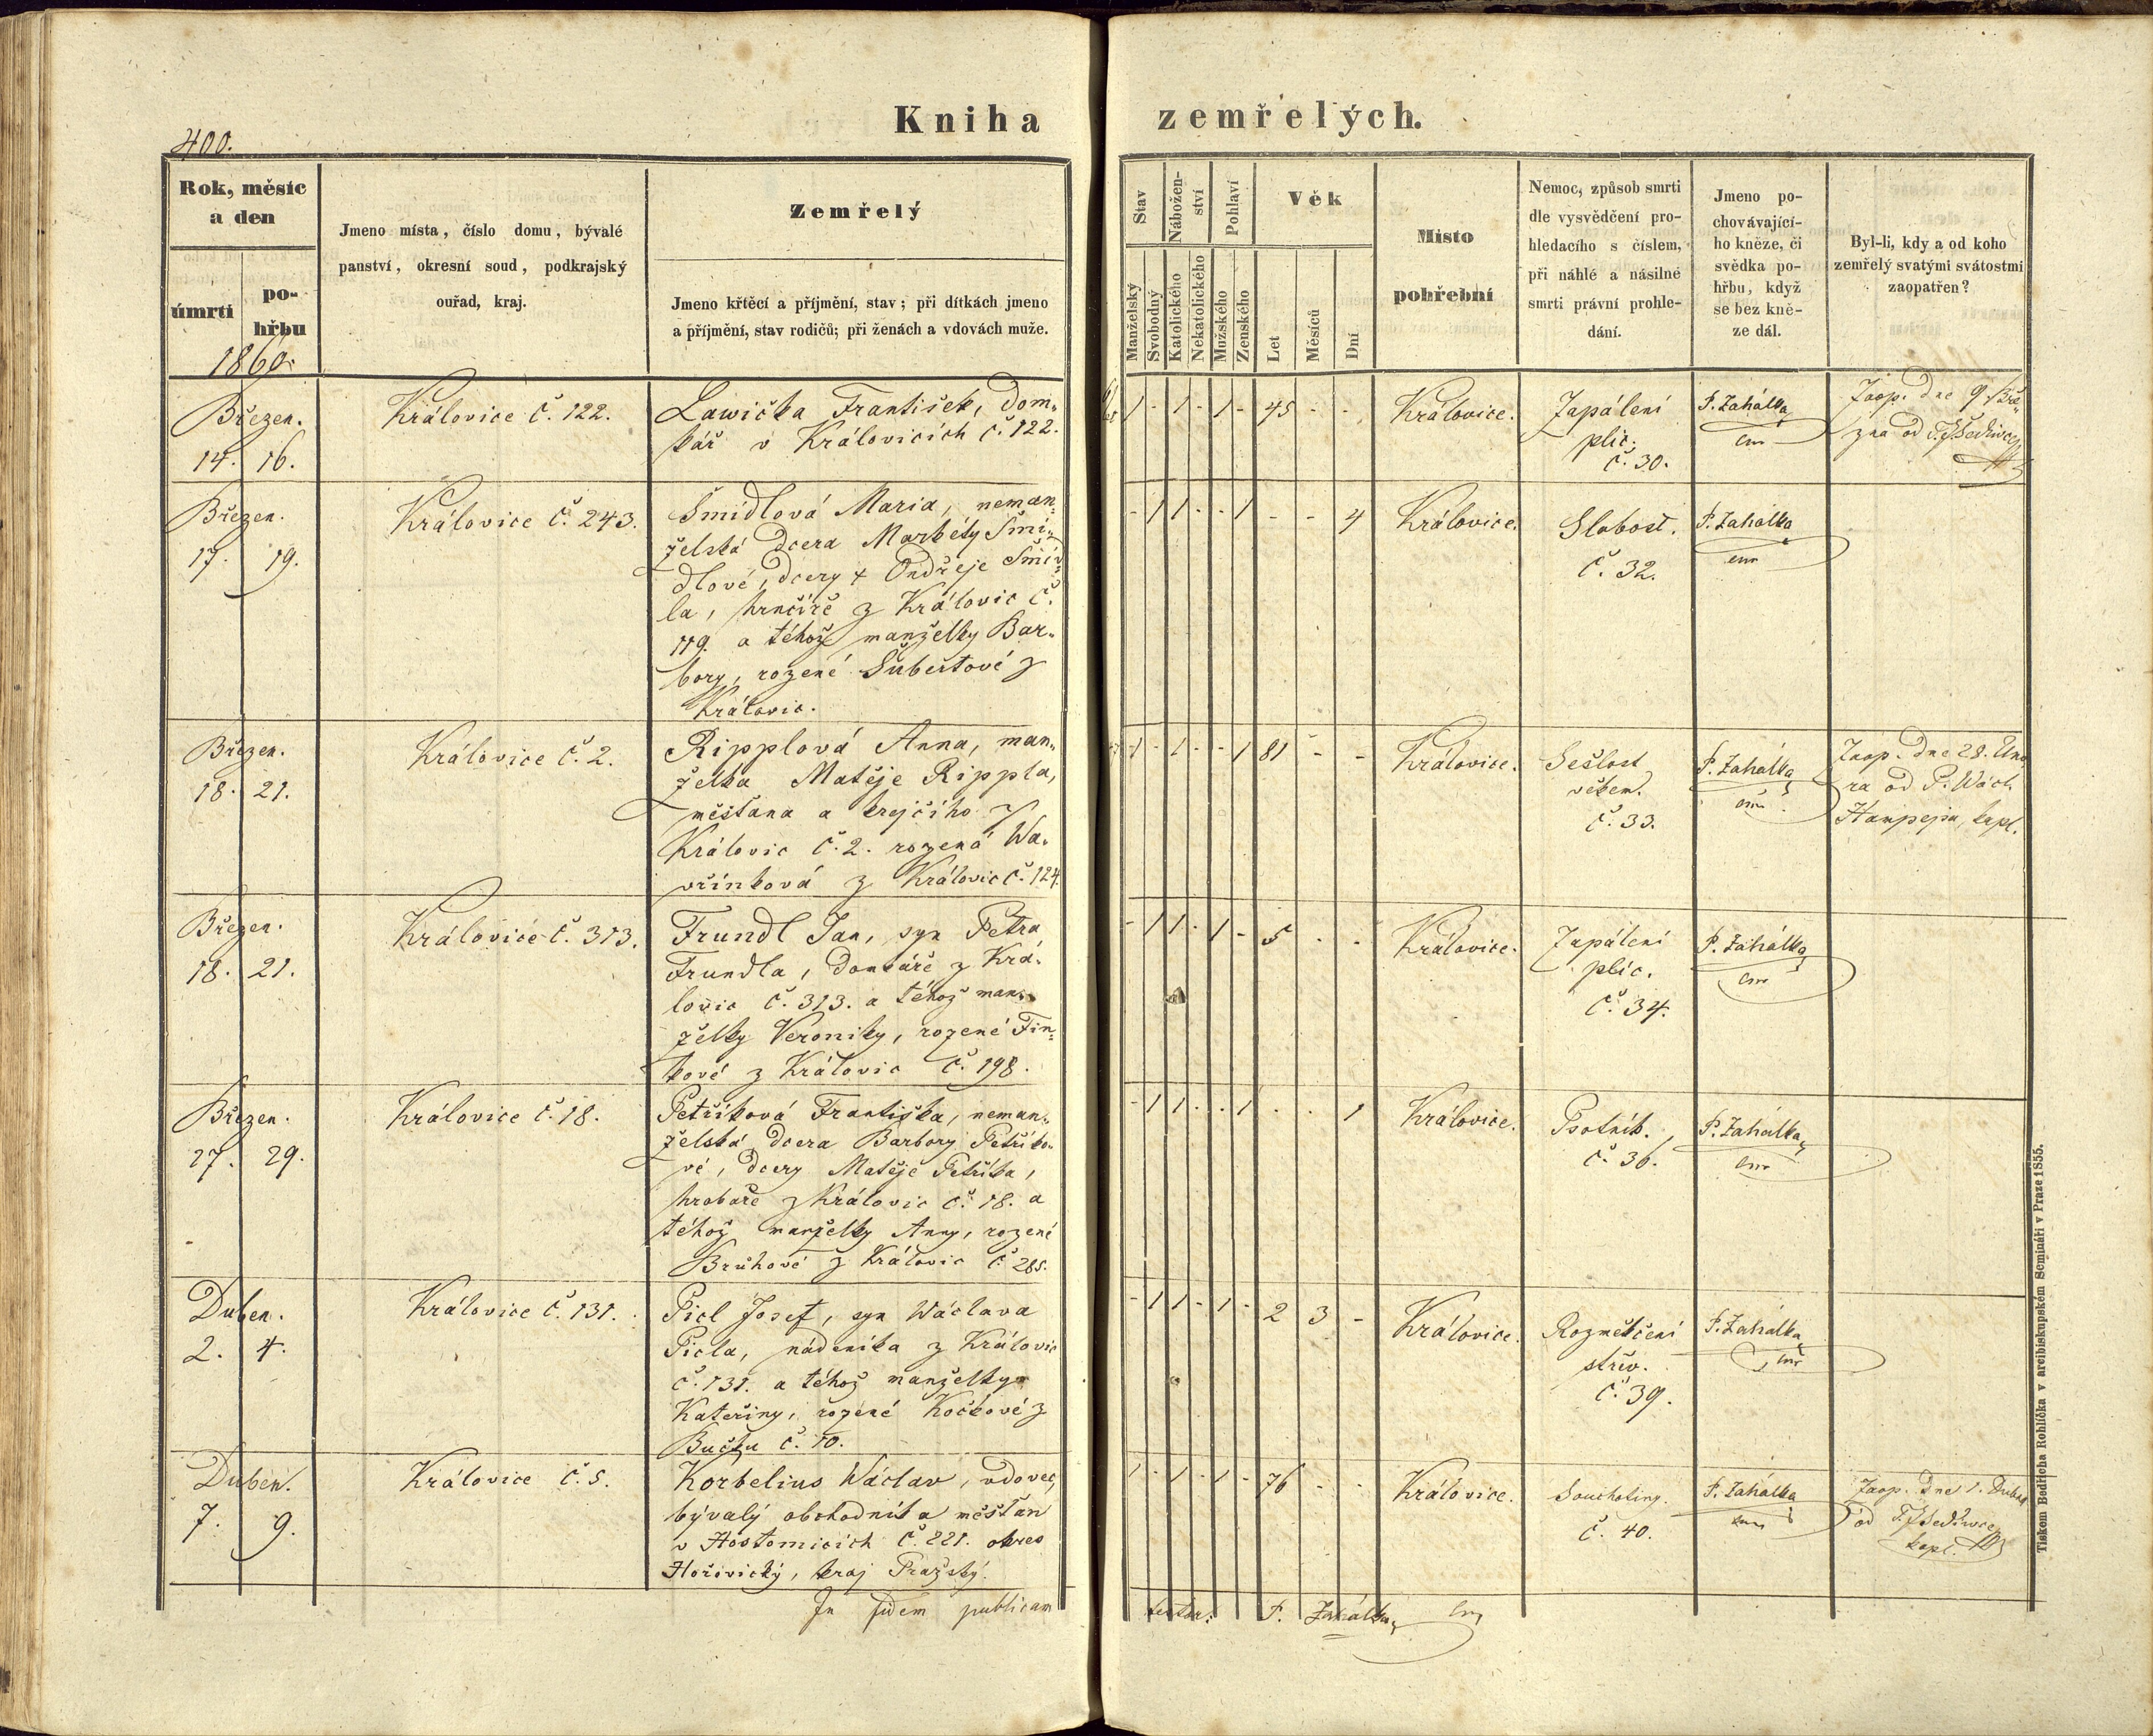 Kniha zemřelých.
400.
Rok, měsíc
a den
úmrtí
po-
hřbu
1860.
Jmeno místa, číslo domu, bývalé
panství, okresní soud, podkrajský
ouřad, kraj.
Zemřelý
Jmeno křtěcí a příjmění, stav; při dítkách jmeno
a příjmění, stav rodičů; při ženách a vdovách muže.
Stav
Manželský
Svobodný
Nábožen-
ství
Katolického
Nekatolického
Pohlaví
Mužského
Ženského
Věk
Let
Měsíců
Dní
Místo
pohřební
Nemoc, způsob smrti
dle vysvědčení pro-
hledacího s číslem,
při náhlé a násilné
smrti právní prohle-
dání.
Jmeno po-
chovávající-
ho kněze, či
svědka po-
hřbu, když
se bez kně-
ze dál.
Byl-li, kdy a od koho
zemřelý svatými svátostmi
zaopatřen?
Březen.
14. 16.
Královice č. 122.
Lawička František, dom-
kář v Královicích č. 122.
1 - 1 - 1 - 45 - -
Královice.
Zapálení
plic.
č. 30.
P. Zahálka
Zaop. dne 9. Bře-
zna od
Březen.
17. 19.
Královice č. 243.
Šmidlová Maria, neman-
želská dcera Markéty Šmí-
dlové, dcery + Ondřeje Šmíd-
la, hrnčíře z Královic č.
119. a téhož manželky Bar-
bory, rozené Šubertové z
Královic.
- 1 1 - - 1 - - 4
Královice.
Slabost.
č. 32.
P. Zahálka
Březen.
18. 21.
Královice č. 2.
Ripplová Anna, man-
želka Matěje Rippla,
měšťana a krejčího z
Královic č. 2. rozená Wa-
vřínková z Královic č. 124.
1 - 1 - - 1 81 - -
Královice.
Sešlost
věkem.
č. 33.
P. Zahálka
Zaop. dne 28. Úno
ra od P. Wácl.
kapl.
Březen.
18. 21.
Královice č. 313.
Frundl Jan, syn Petra
Frundla, domkáře z Krá-
lovic č. 313. a téhož man-
želky Veroniky, rozené Fin-
kové z Královic č. 198.
- 1 1 - 1 - 5 - -
Královice.
Zapálení
plic.
č. 34.
P. Zahálka
Březen.
27. 29.
Královice č. 18.
Petříková Františka, neman-
želská dcera Barbory Petříko-
vé, dcery Matěje Petříka,
hrobaře z Královic č. 18. a
téhož manželky Anny, rozené
Brůhové z Královic č. 285.
- 1 1 - - 1 - - 1
Královice.
Psotník.
č. 36.
P. Zahálka
Duben.
2. 4.
Královice č. 131.
Picl Josef, syn Wáclava
Picla, nádeníka z Královic
č. 131. a téhož manželky
Kateřiny, rozené Kočkové z
Bučku č. 10.
- 1 1 - 1 - 2 3 -
Královice.
Rozměkčení
střev.
č. 39.
P. Zahálka
Duben.
7. 9.
Královice č. 5.
Korbelius Wáclav, vdovec,
bývalý obchodník a měšťan
v Hostomicích č. 221. okres
Hořovický, kraj Pražský.
1 - 1 - 1 - 76 - -
Královice.
Souchotiny.
č. 40.
P. Zahálka
Zaop. dne 1. Dubna
od
kapl.
In fidem publicam
testor: P. Zahálka
Tiskem Bedřicha Rohlíčka v arcibiskupském Semináři v Praze 1855.